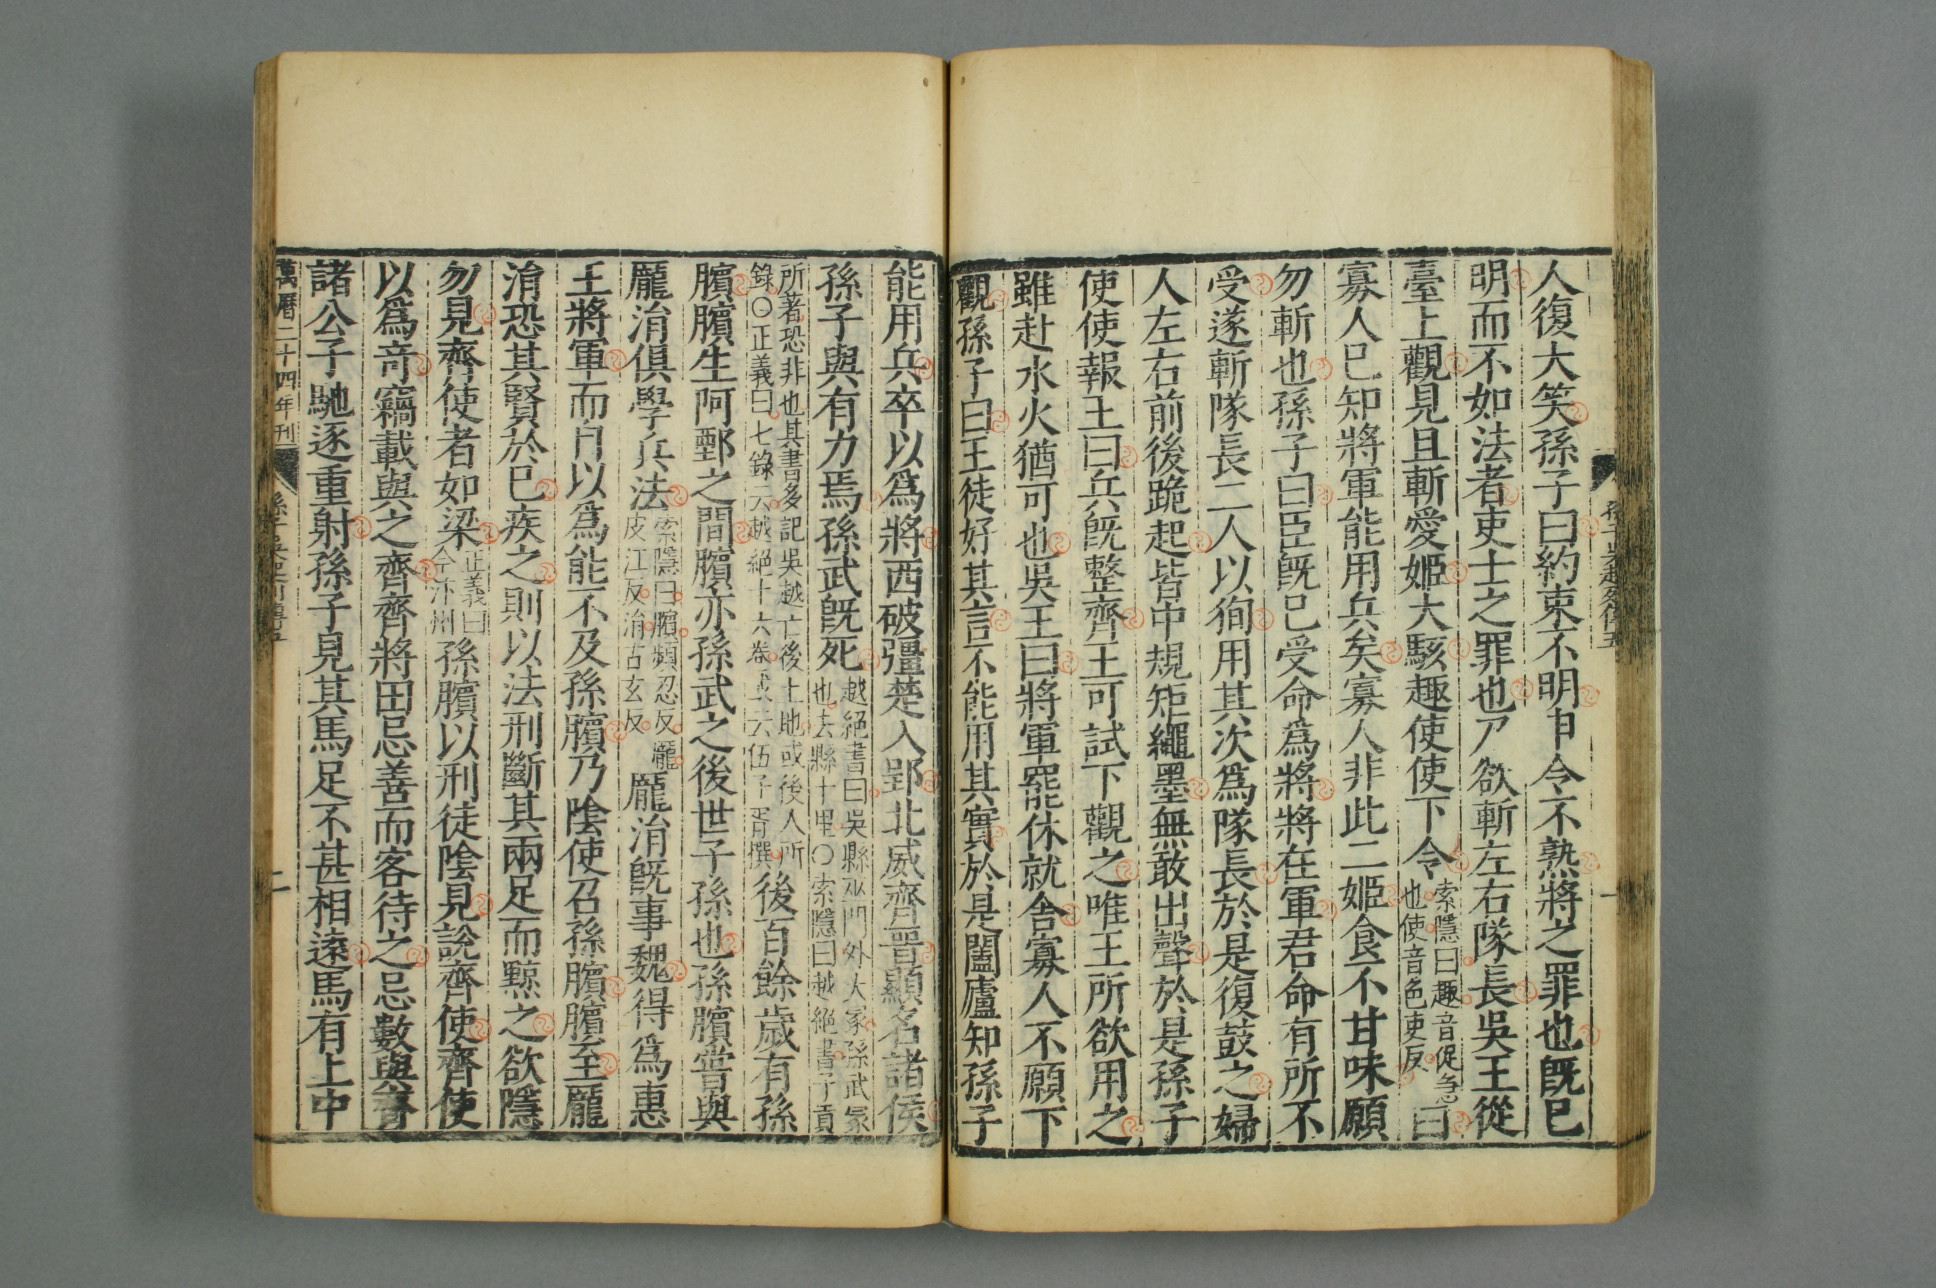 人復大笑孫子曰約束不明申令不熟將之罪也既已
明而不如法者吏士之罪也乃欲斬左右隊長吳王從
臺上觀見且斬愛姬大駭趣使使下令索隱曰趣音促急也使音色吏反曰
寡人已知將軍能用兵矣寡人非此二姬食不甘味願
勿斬也孫子曰臣既已受命爲將將在軍君命有所不
受遂斬隊長二人以徇用其次爲隊長於是復鼓之婦
人左右前後跪起皆中規矩繩墨無敢出聲於是孫子
使使報王曰兵既整齊王可試下觀之唯王所欲用之
雖赴水火猶可也吳王曰將軍罷休就舍寡人不願下
觀孫子曰王徒好其言不能用其實於是闔廬知孫子
能用兵卒以爲將西破彊楚入郢北威齊晉顯名諸侯
孫子與有力焉孫武既死越絕書曰吳縣巫門外大冢孫武冢也去縣十里〇索隱曰越絕書子貢
所著恐非也其書多記吳越亡後土地或後人所錄〇正義曰七錄云越絕十六卷或云伍子胥撰後百餘歲有孫
臏臏生阿鄄之間臏亦孫武之後世子孫也孫臏嘗與
龐涓俱學兵法索隱曰臏頻忍反龐皮江反涓古玄反龐涓既事魏得爲惠
王將軍而自以爲能不及孫臏乃陰使召孫臏臏至龐
涓恐其賢於己疾之則以法刑斷其兩足而黥之欲隱
勿見齊使者如梁正義曰今汴州孫臏以刑徒陰見說齊使齊使
以爲奇竊載與之齊齊將田忌善而客待之忌數與齊
諸公子馳逐重射孫子見其馬足不甚相遠馬有上中
萬曆二十四年刊 孫子吳起列傳五 二